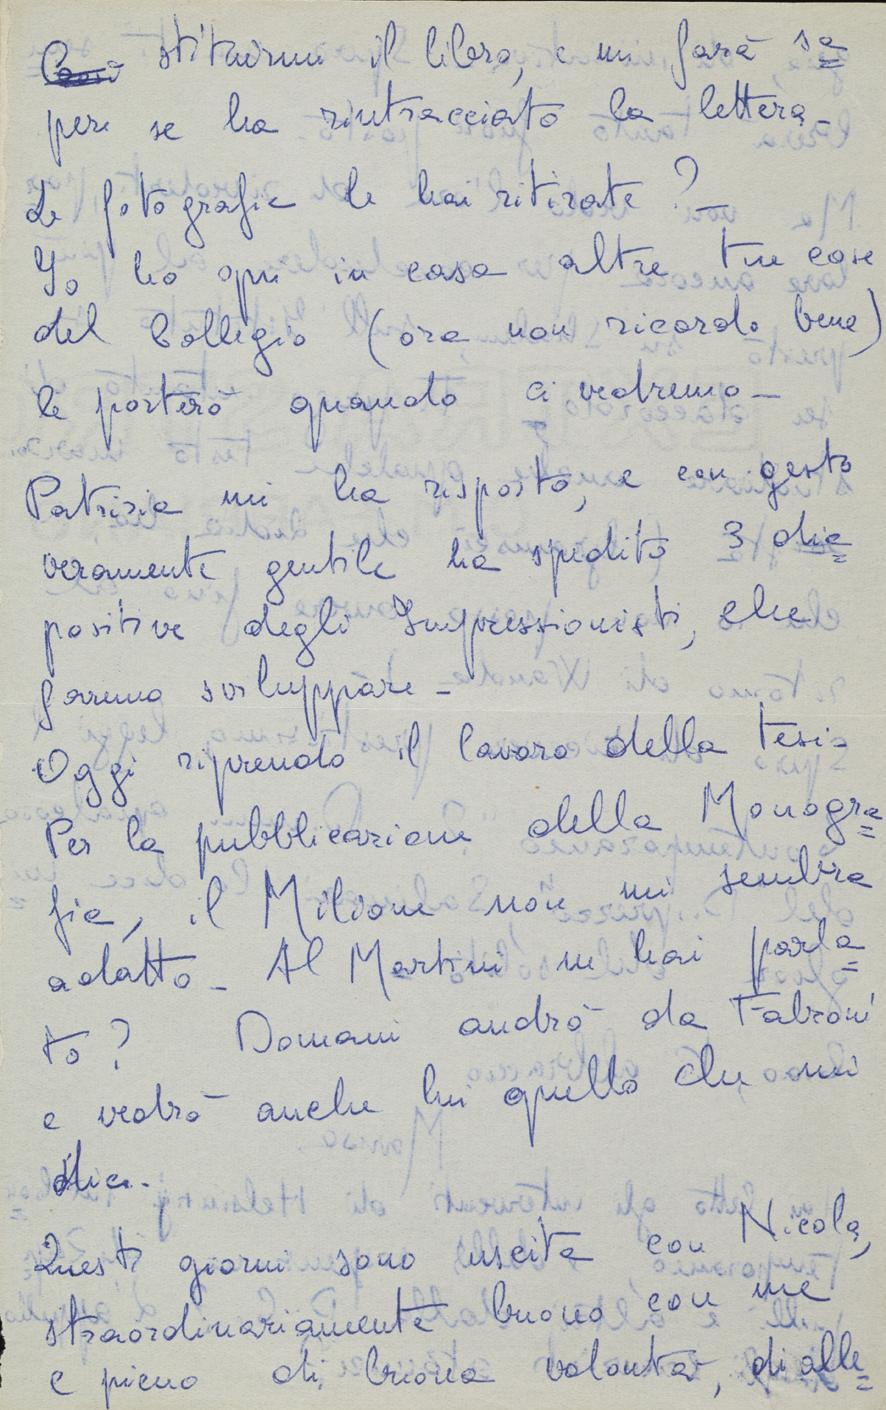 stituirmi il libro, e mi farà sa=
pere se ha rintracciato la lettera-
Le fotografie le hai ritirate? -
Io ho qui in casa altre tue cose
del Collegio (ora non ricordo bene)
le porterò quando ci vedremo -
Patrizia mi ha risposto, e con gesto
veramente gentile ha spedito 3 dia=
positive degli Impressionisti, che
faremo sviluppare -
Oggi riprendo il lavoro della tesi-
Per la pubblicazione della Monogra=
fia, il Milione non mi sembra
adatto - Al Martini ne hai parla=
to? Domani andrò da Fabroni
e vedrò anche lui quello che mi
dice.
Questi giorni sono uscita con Nicola,
straordinariamente buono con me
e pieno di buona volontà, di alle=